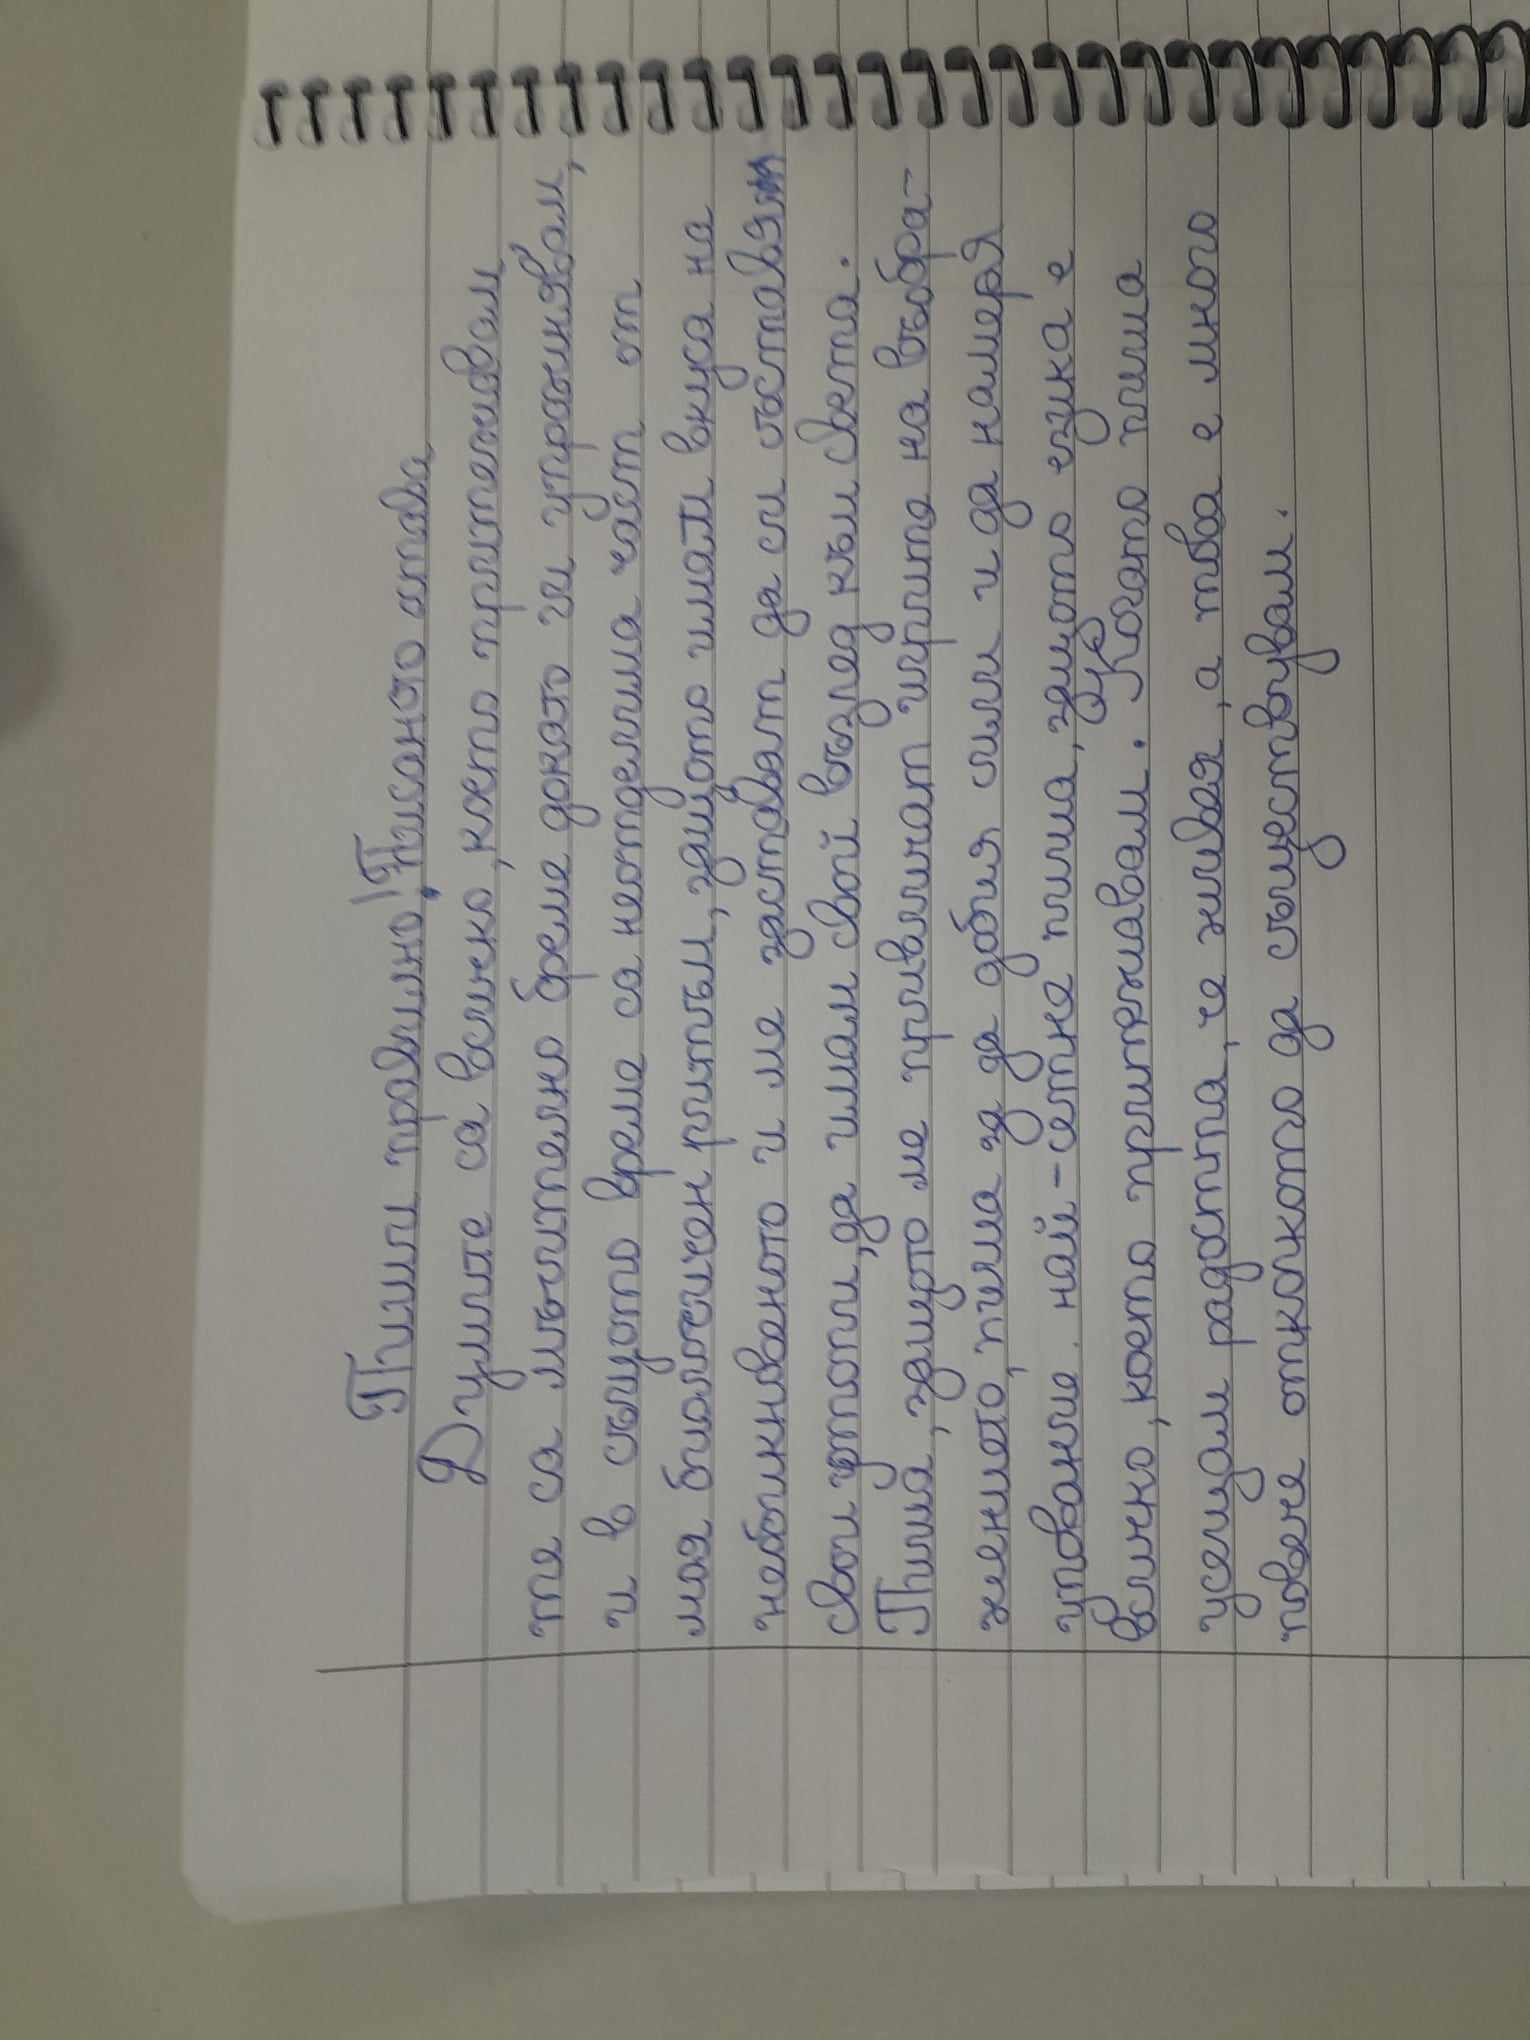 Пиши правилно! Писаното остава
Думите са всичко, което притежавам
те са мъчително бреме докато ги упражнявам,
и в същото време са неотделима част от
моя биологичен ритъм, защото имат вкуса на
небивикнваното и ме заставят да си съставям
свои утопии, да имам свой възглед към света.
Пиша, защото ме привличат игрите на въобра-
жението, пиша за да добия сили и да намеря
упование. най-сетне пиша, защото езика е
всичко, което притежавам. Когато пиша
усещам радостта, че живея, а това е много
повече отколкото да съществувам.